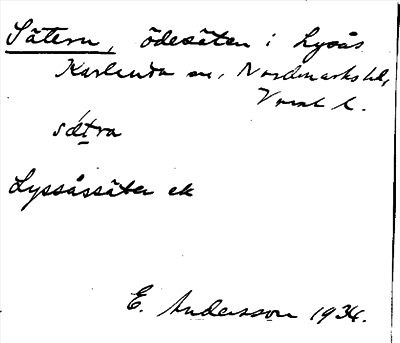 Sätern, ödesäter i Lysås
Karlanda sn, Nordmarks hd,
Värml l.
sä́tra
Lyssåssäter ek
E. Andersson 1934.